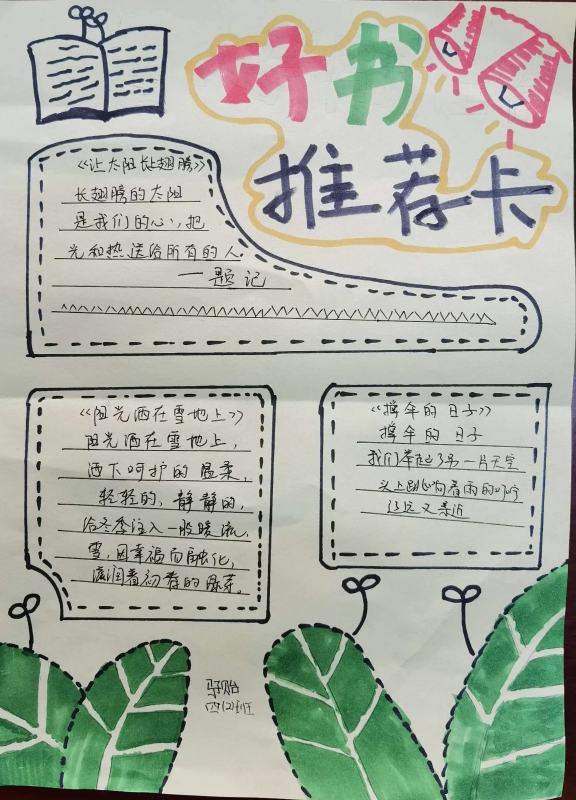 好书
推荐卡
《让太阳长翅膀》
长翅膀的太阳
是我们的心，把
光和热送给所有的人
—题记
《阳光洒在雪地上》
阳光洒在雪地上，
洒下呵护的温柔，
轻轻的，静静的，
给冬季注入一股暖流，
雪，因幸福而融化，
滋润着初春的绿芽。
《撑伞的日子》
撑伞的日子
我们举起了另一片天空
头上跳响着雨的叮咛
又亲近
四(2)班